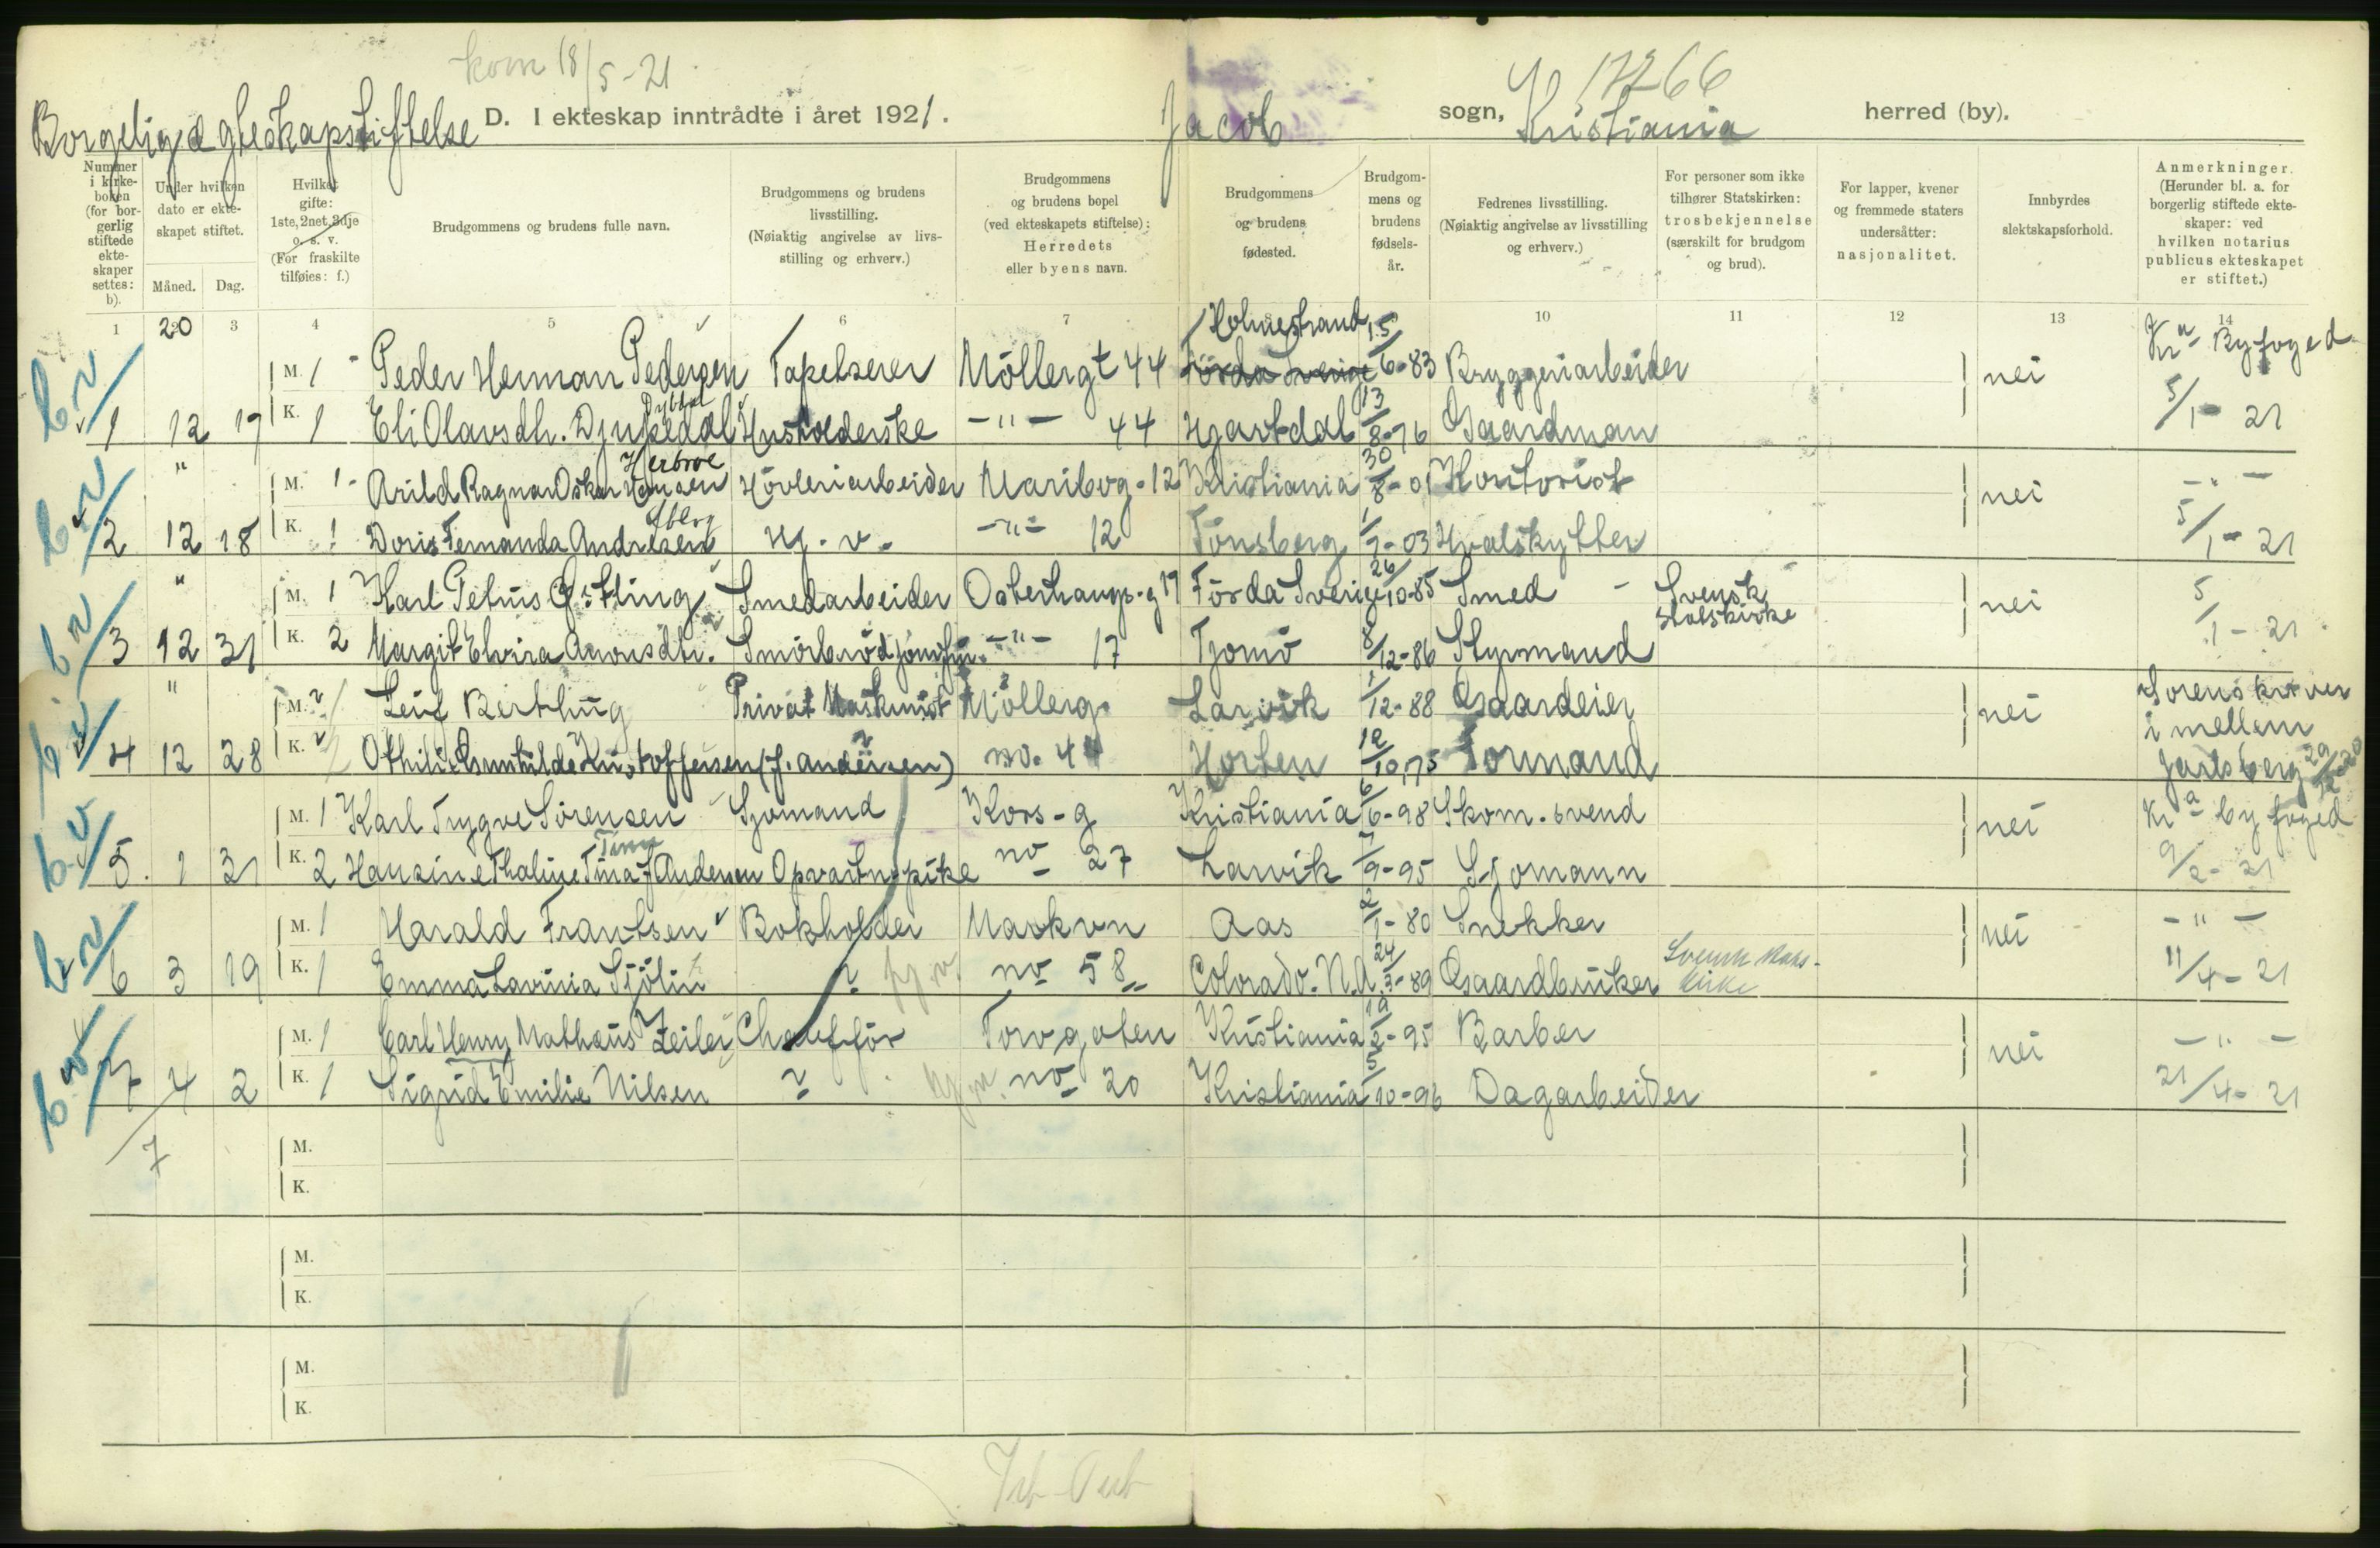 kom 18/5-21
Borgelig ægteskapstiftelse D. I ekteskap inntrådte i året 1921. Jacob sogn, Kristiania herred (by).
17266
Nummer i kirkeboken (for borgerlig stiftede ekteskaper settes: b).
Under hvilken dato er ekteskapet stiftet.
Måned. Dag.
Hvilket gifte: 1ste, 2net, 3dje o. s. v. (For fraskilte tilføies: f.)
Brudgommens og brudens fulle navn.
Brudgommens og brudens livsstilling. (Nøiaktig angivelse av livsstilling og erhverv.)
Brudgommens og brudens bopel (ved ekteskapets stiftelse): Herredets eller byens navn.
Brudgommens og brudens fødested.
Brudgommens og brudens fødselsår.
Fedrenes livsstilling. (Nøiaktig angivelse av livsstilling og erhverv.)
For personer som ikke tilhører Statskirken: trosbekjennelse (særskilt for brudgom og brud).
For lapper, kvener og fremmede staters undersåtter: nasjonalitet.
Innbyrdes slektskapsforhold.
Anmerkninger. (Herunder bl. a. for borgerlig stiftede ekteskaper: ved hvilken notarius publicus ekteskapet er stiftet.)
1 20 3 4 5 6 7 10 11 12 13 14
Holmestrand
M. 1 Peder Herman Pedersen Tapetserer Möllergt 44 Förda Sverige 15/6-83 Bryggeriarbeider nei Kra Byfoged
1 12 17 K. 1 Eli Olavsdh. Djupedal Husholderske -"- 44 Hjartdal 13/8-76 Gaardman 5/1-21
" M. 1 Arild Ragnar Oskar Hansen Hövleriarbeider Maribog-12 Kristiania 30/8-01 Kontorist nei -"-
2 12 18 K. 1 Doris Fernanda Andresen Hj. v. -"- 12 Tönsberg 1/7-03 Hvalskytter 5/1-21
" M. 1 Karl Petrus Östling Smedarbeider Osterhaugs-g 17 Förda Sverige 26/10-85 Smed - Svensk Statskirke nei 5/1-21
3 12 31 K. 2 Margit Elvira Aronsdtr. Smörbrödjomfru -"- 17 Tjomö 8/12-86 Styrmand
" M. 1 Leif Berthling Privat Maskinist Möllerg. Larvik 1/12-88 Gaardeier nei Sorenskriver i mellem
4 12 28 K. Othilie Kristoffersen (f. andersen) no. 44 Horten 12/10,75 Formand Jarlsberg 29/12-20
M. 1 Karl Trygve Sörensen Sjomand Kors-g Kristiania 6/6-98 Skom. svend nei Kra byfoged
5. 1 31 K. 2 Hansine Thaline Tina f Andersen Opvartnpike no 27 Larvik 7/9-95 Sjomann 9/2-21
M. 1 Harald Frantsen Bokholder Markvn Aas 2/1-80 Snekker nei -"-
6 3 19 K. 1 Emma Lavinia Sjölin ? hj.v. no 58 Colorado. N.A. 24/3-89 Gaardbruker Svensk Stats-kirke 11/4-21
M. 1 Carl Henry Mathæus Zeiler Chaufför Torvgaten Kristiania 19/2-95 Barber nei -"-
7 4 2 K. 1 Sigrid Emilie Nilsen ? hj.v. no 20 Kristiania 5/10-96 Dagarbeider 21/4-21
7 M.
K.
M.
K.
M.
K.